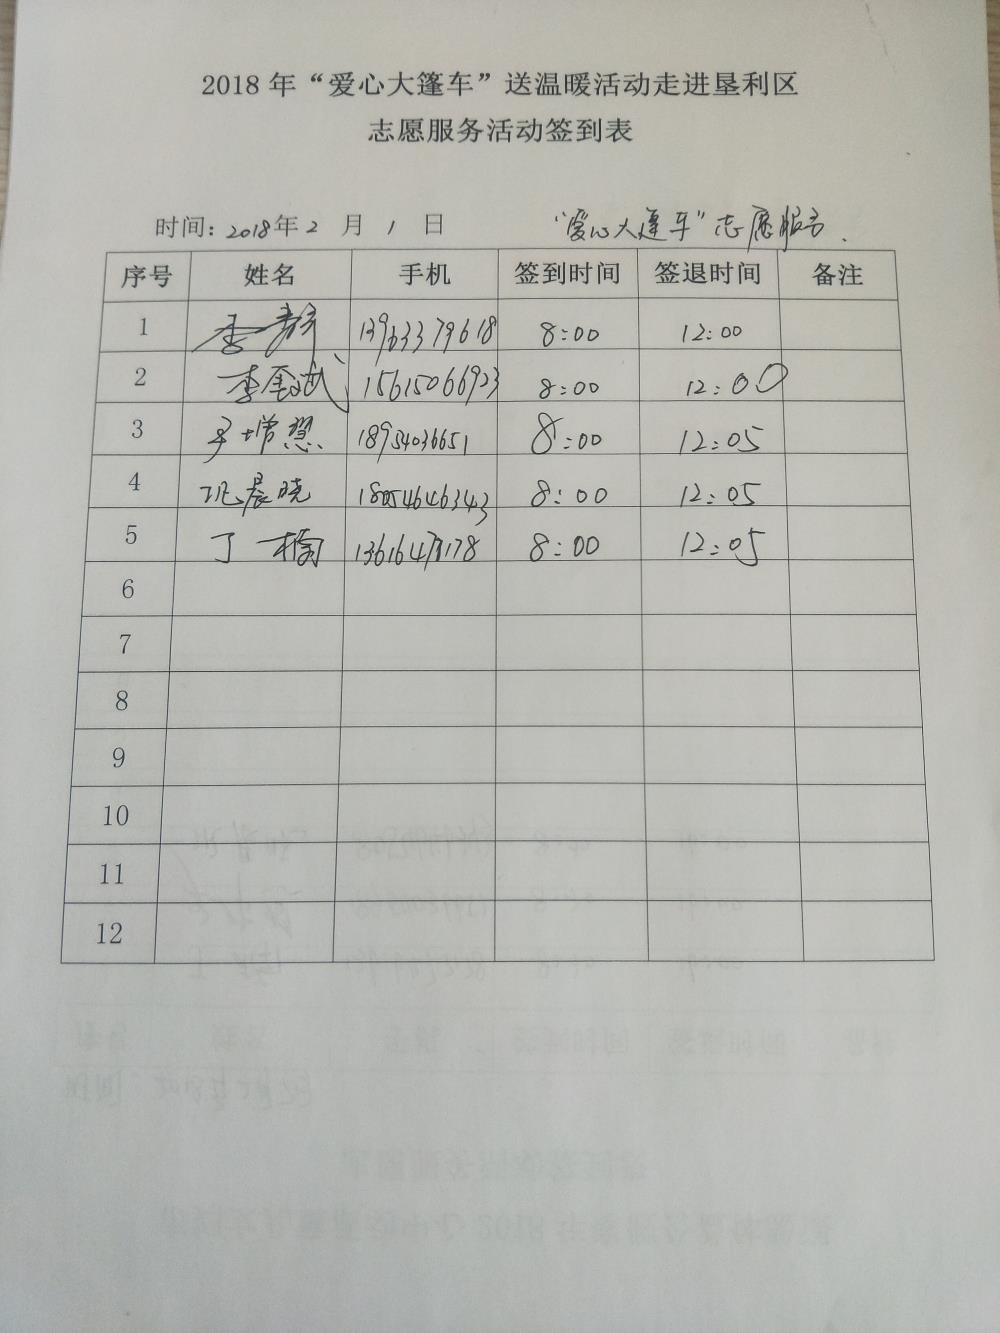 2018 年“爱心大篷车”送温暖活动走进垦利区
志愿服务活动签到表
时间: 2018年 2 月 1 日 “爱心大篷车”志愿服务.
序号 姓名 手机 签到时间 签退时间 备注
1 13963379618 8:00 12:00
2 15615066923 8:00 12:00
3 18954036651 8:00 12:05
4 晨晓 18054646343 8:00 12:05
5 丁楠 8:00 12:05
6
7
8
9
10
11
12